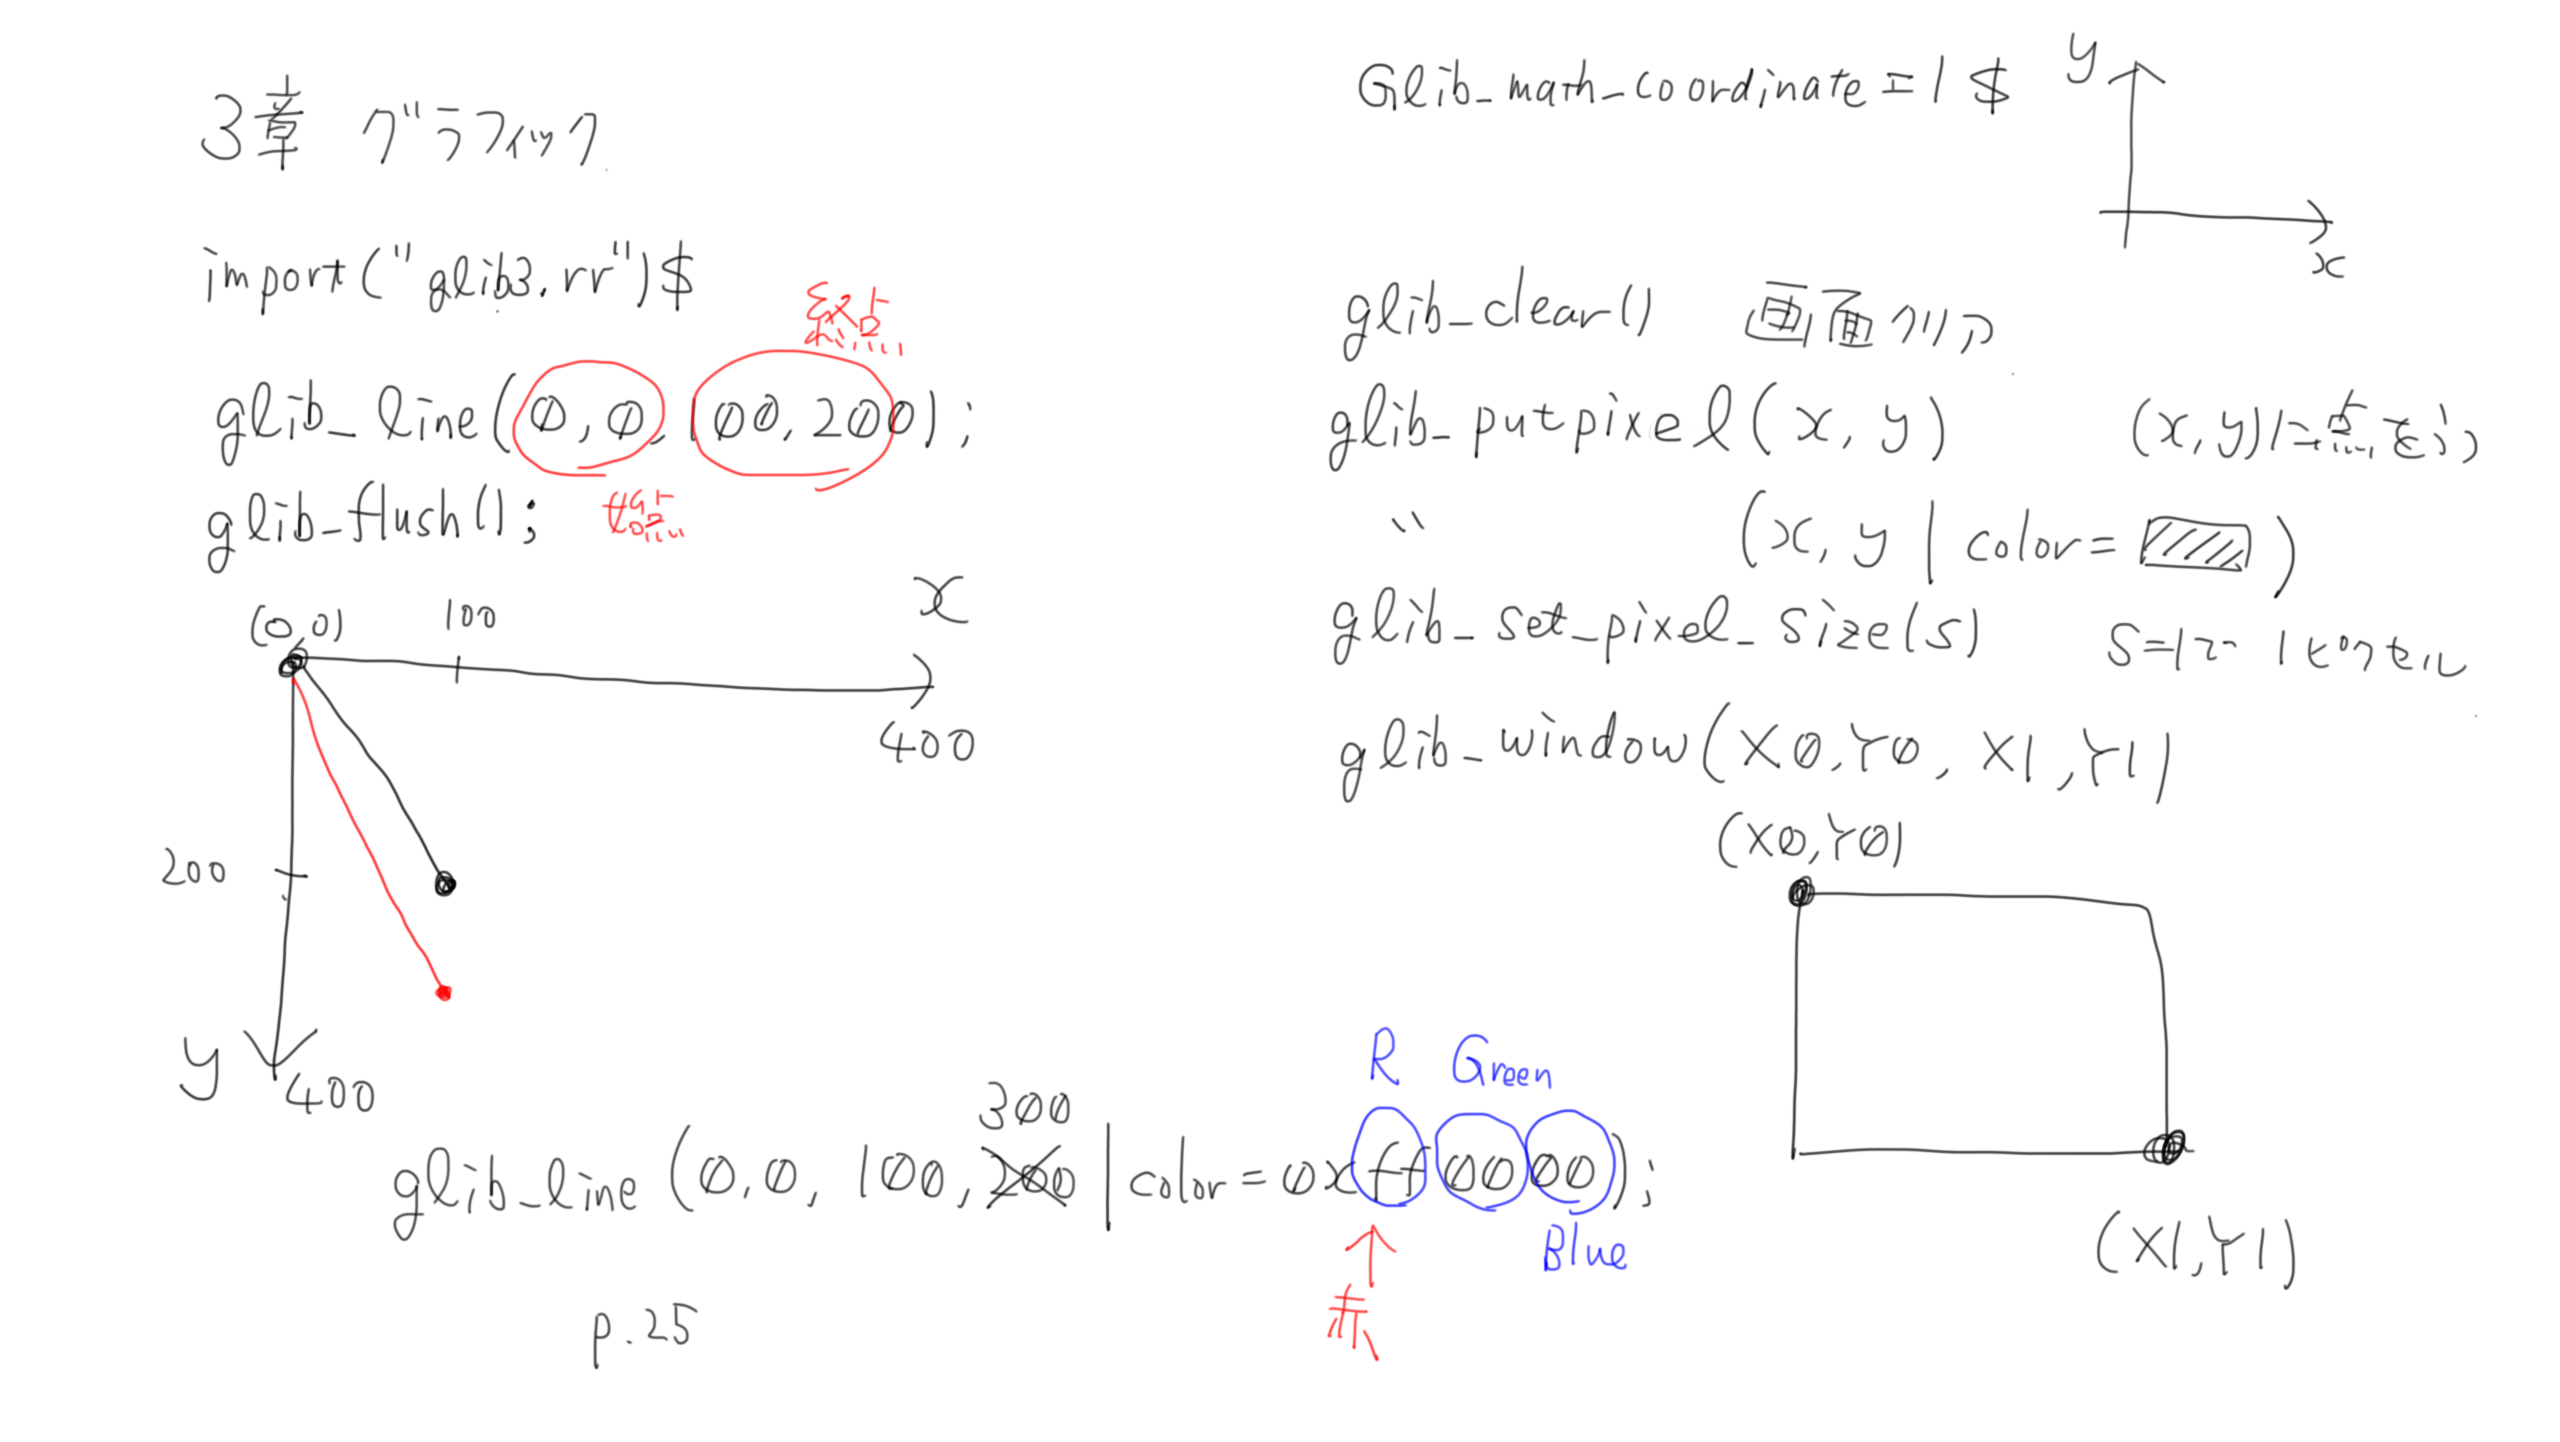 3章 グラフィック
import("glib3.rr")$
終点
glib_line(0,0,100,200);
始点
glib_flush();
(0,0)
100
x
400
200
y
400
300
glib_line(0,0,100,200|color=0xff0000);
R Green
Blue
赤
p.25
Glib_math_coordinate=1$
y
x
glib_clear() 画面クリア
glib_putpixel(x,y) (x,y)に点をうつ
〃 (x,y|color= )
glib_set_pixel_size(s) S=1で 1ピクセル
glib_window(X0,Y0,X1,Y1)
(X0,Y0)
(X1,Y1)